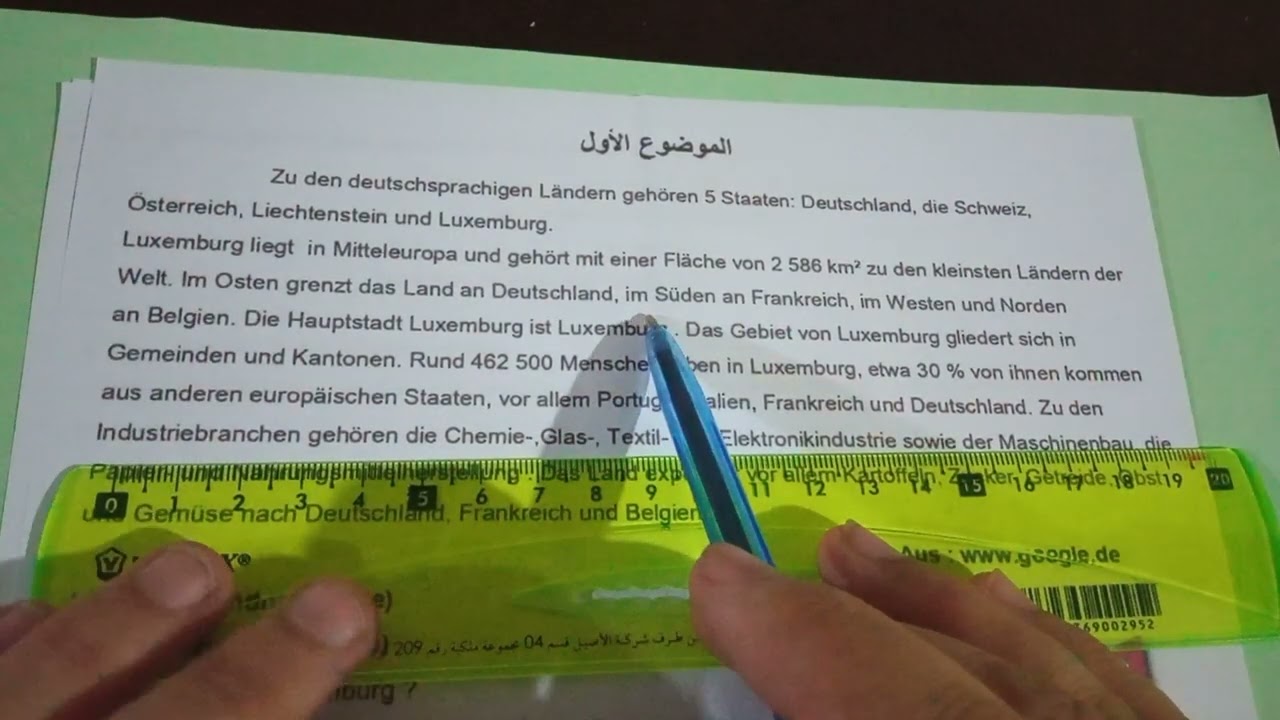 الموضوع الأول
Zu den deutschsprachigen Ländern gehören 5 Staaten: Deutschland, die Schweiz,
Österreich, Liechtenstein und Luxemburg.
Luxemburg liegt in Mitteleuropa und gehört mit einer Fläche von 2 586 km² zu den kleinsten Ländern der
Welt. Im Osten grenzt das Land an Deutschland, im Süden an Frankreich, im Westen und Norden
an Belgien. Die Hauptstadt Luxemburg ist Luxembu . Das Gebiet von Luxemburg gliedert sich in
Gemeinden und Kantonen. Rund 462 500 Mensche ben in Luxemburg, etwa 30 % von ihnen kommen
aus anderen europäischen Staaten, vor allem Portug alien, Frankreich und Deutschland. Zu den
Industriebranchen gehören die Chemie-,Glas-, Textil- Elektronikindustrie sowie der Maschinenbau, die
Papier- und Nahrungsmittelherstellung. Das Land exp vor allem Kartoffeln, Zucker, Getreide, Obst
und Gemüse nach Deutschland, Frankreich und Belgien
0 1 2 3 4 5 6 7 8 9 11 12 13 14 15 16 17 18 19 20
Aus : www.google.de
e)
69002952
طرف شركة الأصيل قسم 04 مجموعة ملكية رقم 209
burg ?